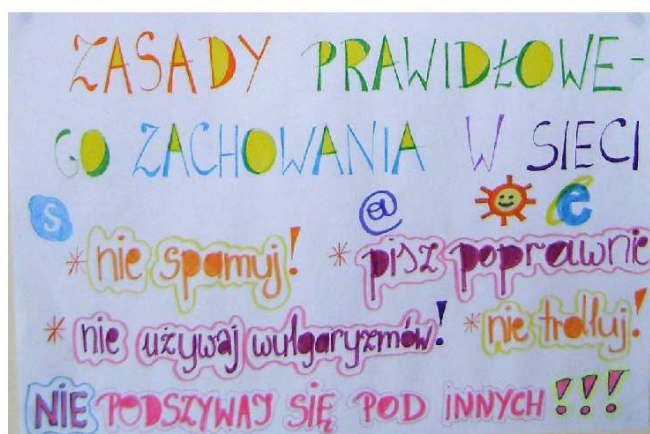 ZASADY PRAWIDŁOWE-
GO ZACHOWANIA W SIECI
S @ e
* nie spamuj! * pisz poprawnie
* nie używaj wulgaryzmów! * nie trolluj!
NIE PODSZYWAJ SIĘ POD INNYCH !!!